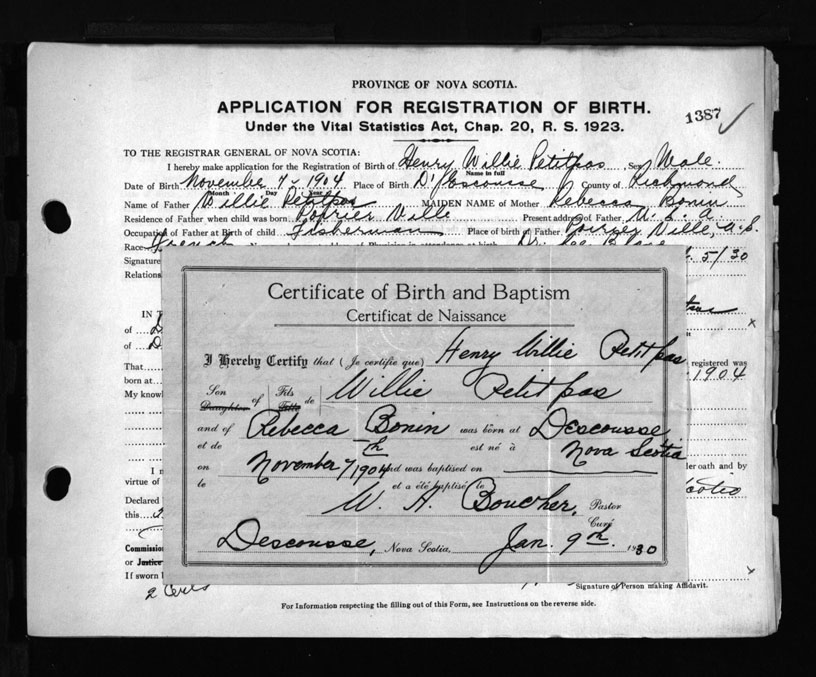 PROVINCE OF NOVA SCOTIA.
APPLICATION FOR REGISTRATION OF BIRTH.
1387
Under the Vital Statistics Act, Chap. 20, R. S. 1923.
TO THE REGISTRAR GENERAL OF NOVA SCOTIA:
I hereby make application for the Registration of Birth of Henry Willie Petitpas Sex Male.
Name in full
Date of Birth November 7, 1904 Place of Birth D'Escousse County of Richmond
Month Day Year
Name of Father Willie Petitpas MAIDEN NAME of Mother Rebecca Bonin
Residence of Father when child was born Poirier Ville Present address of Father U. S. A.
Occupation of Father at Birth of child Fisherman Place of birth of Father Poirier Ville,
Race French Physician in attendance at birth Dr.
Signature 5/30
Relations
IN
of D
of D
That registered was
born at 1904
My know
I
der oath and by
virtue of
Declared
this
Commission
or Justice
If sworn
2 Certs
Signature of Person making Affidavit.
For Information respecting the filling out of this Form, see Instructions on the reverse side.
Certificate of Birth and Baptism
Certificat de Naissance
I Hereby Certify that (Je certifie que) Henry Willie Petitpas
Son Daughter of Fils Fille de Willie Petitpas
and of Rebecca Bonin was born at Descousse
et de est né à Nova Scotia
on November 7th 1904 and was baptised on
le et a été baptisé le
W. A. Boucher, Pastor
Curé
Descousse, Nova Scotia, Jan. 9th. 1930